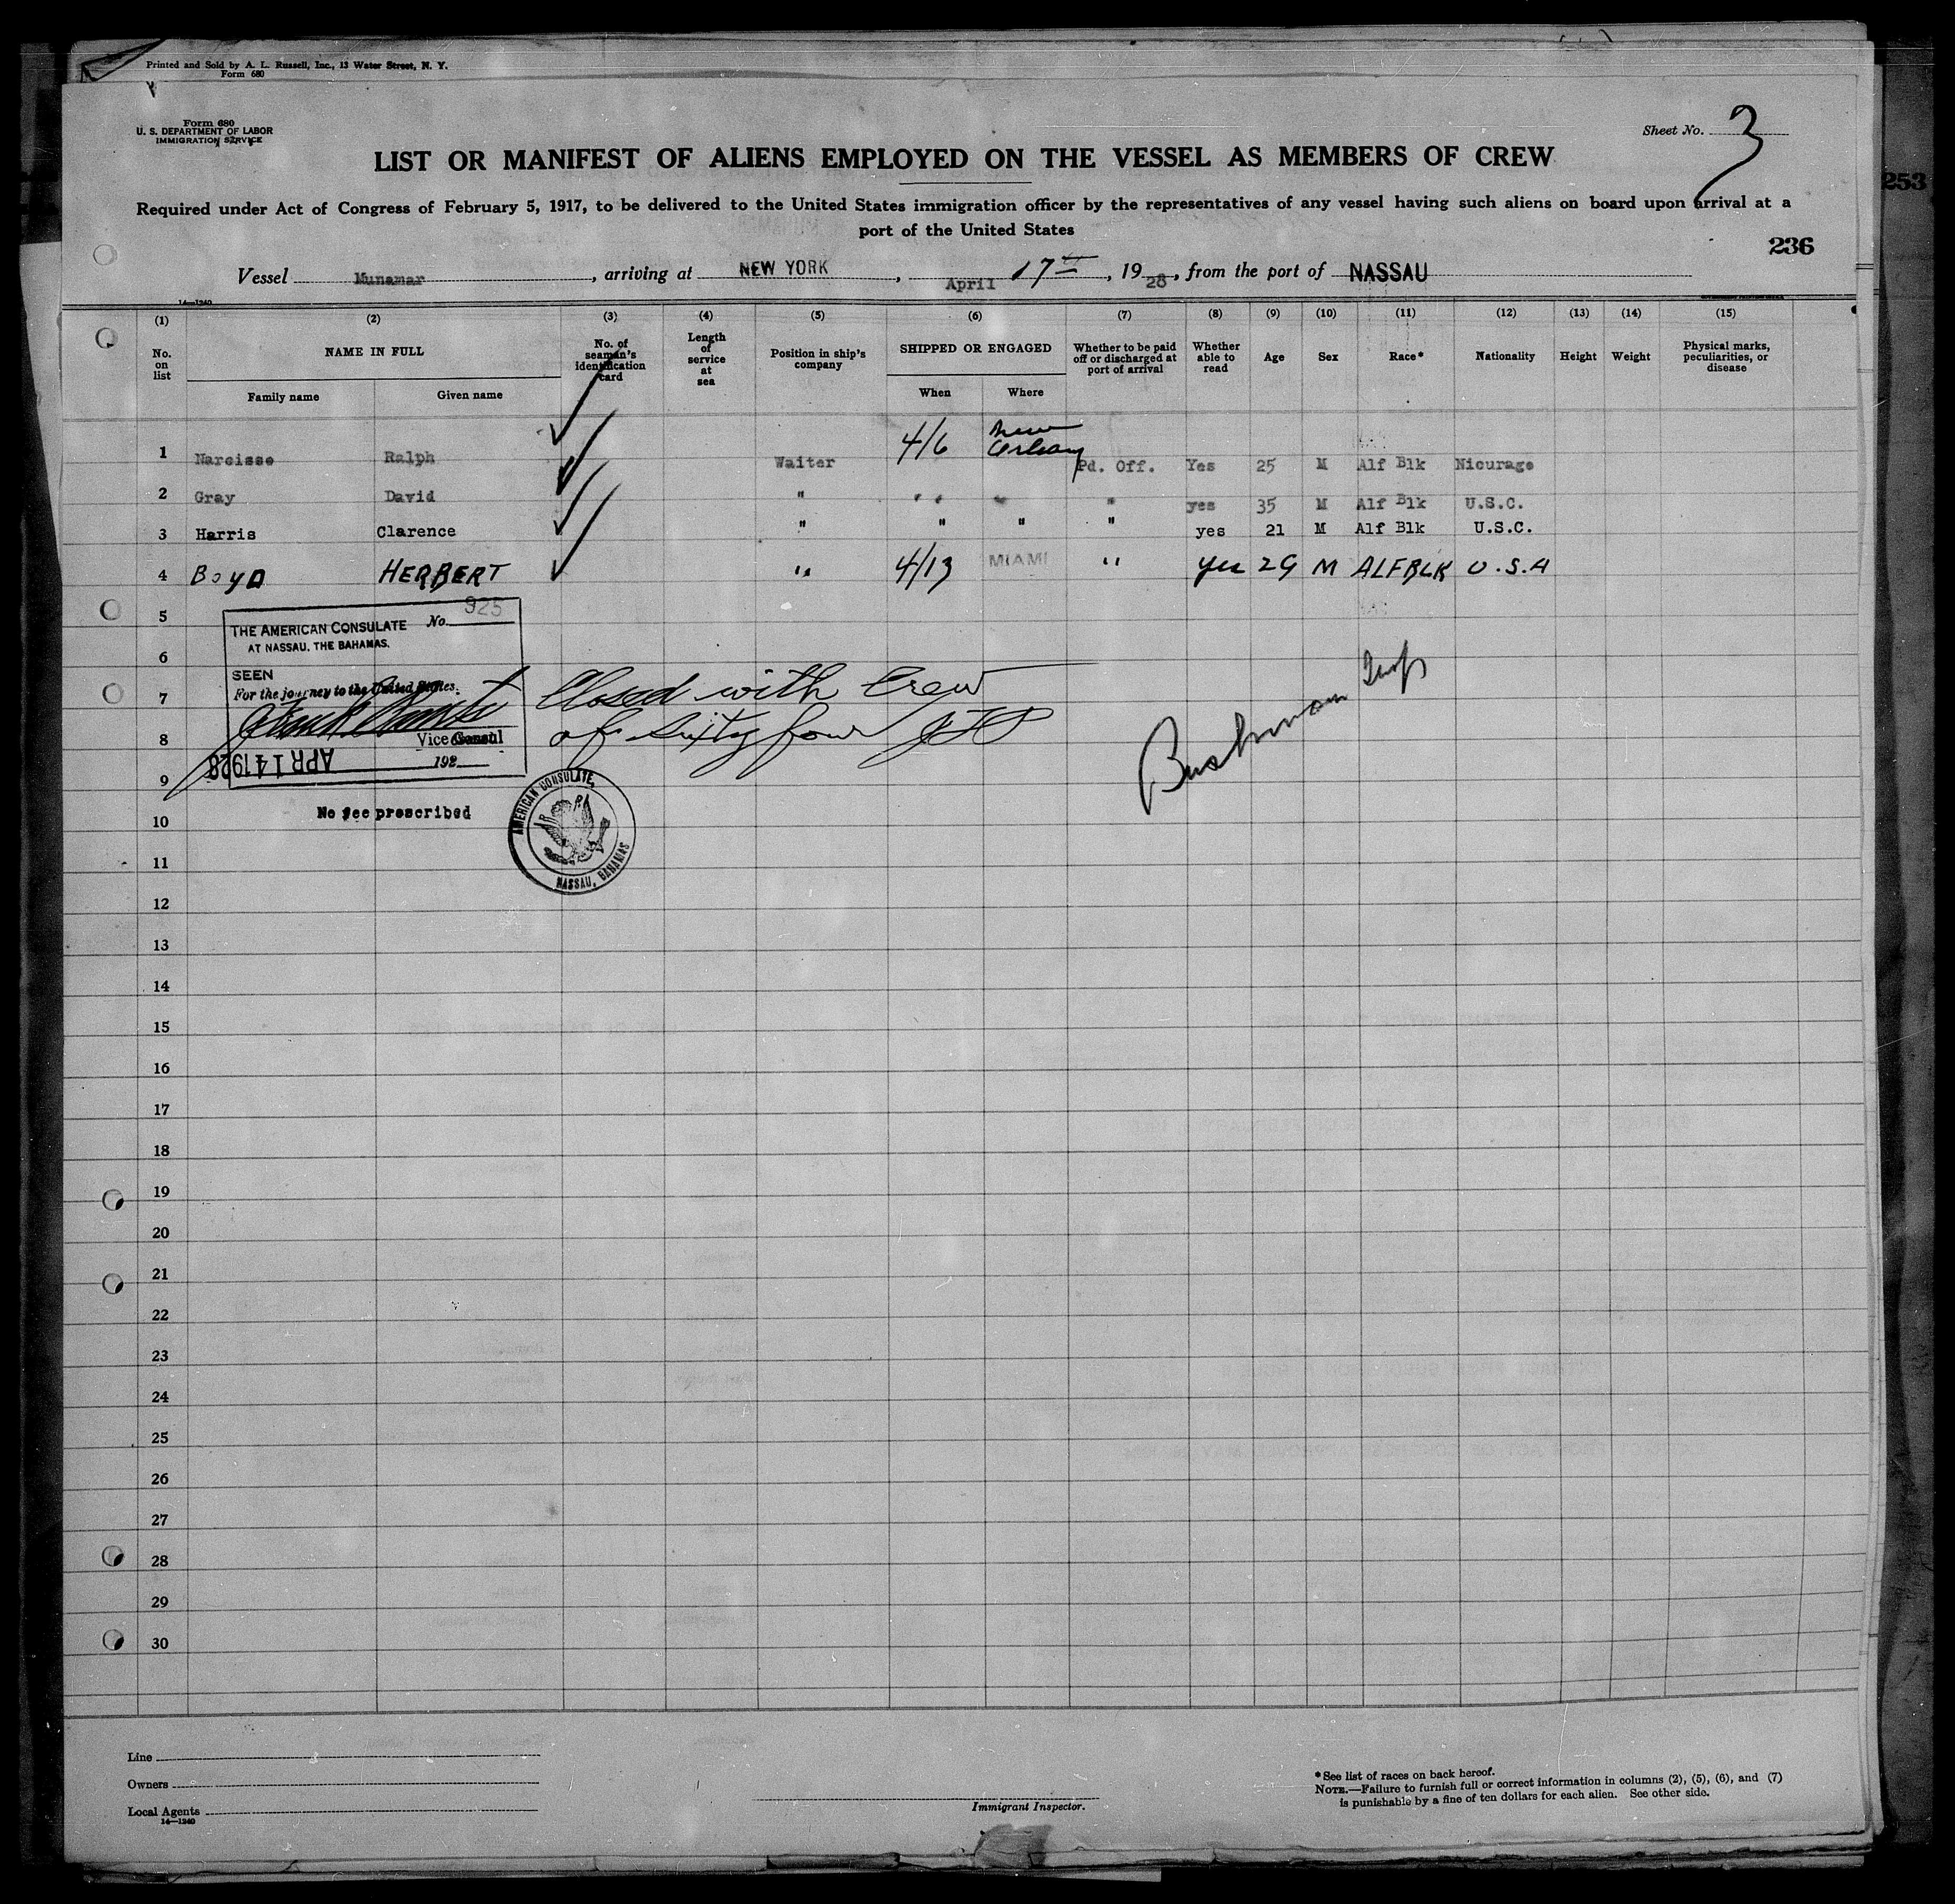 Printed and Sold by A. L. Russell, Inc., 13 Water Street, N. Y.
Form 680
Form 680
U. S. DEPARTMENT OF LABOR
IMMIGRATION SERVICE
Sheet No. 3
LIST OR MANIFEST OF ALIENS EMPLOYED ON THE VESSEL AS MEMBERS OF CREW
253
Required under Act of Congress of February 5, 1917, to be delivered to the United States immigration officer by the representatives of any vessel having such aliens on board upon arrival at a
port of the United States
236
Vessel Munamar, arriving at NEW YORK, April 17th, 1928, from the port of NASSAU
14—1240
(1) (2) (3) (4) (5) (6) (7) (8) (9) (10) (11) (12) (13) (14) (15)
No. on list NAME IN FULL No. of seaman's identification card Length of service at sea Position in ship's company SHIPPED OR ENGAGED Whether to be paid off or discharged at port of arrival Whether able to read Age Sex Race* Nationality Height Weight Physical marks, peculiarities, or disease
Family name Given name When Where
1 Narcisse Ralph Waiter 4/6 New Orleans Pd. Off. Yes 25 M Alf Blk Nicurage
2 Gray David " " " " " yes 35 M Alf Blk U.S.C.
3 Harris Clarence " " " " yes 21 M Alf Blk U.S.C.
4 BOYD HERBERT " 4/13 MIAMI " yes 29 M ALFBLK U.S.A
5
THE AMERICAN CONSULATE No. 925
AT NASSAU, THE BAHAMAS.
6
SEEN
For the journey to the United States.
7 Closed with Crew
8 of sixty four
Vice Consul
APR 14 1928
192
9
No fee prescribed
AMERICAN CONSULATE,
NASSAU, BAHAMAS
10
11
12
13
14
15
16
17
18
19
20
21
22
23
24
25
26
27
28
29
30
Line
Owners
Local Agents
14—1240
Immigrant Inspector.
*See list of races on back hereof.
NOTE.—Failure to furnish full or correct information in columns (2), (5), (6), and (7)
is punishable by a fine of ten dollars for each alien. See other side.